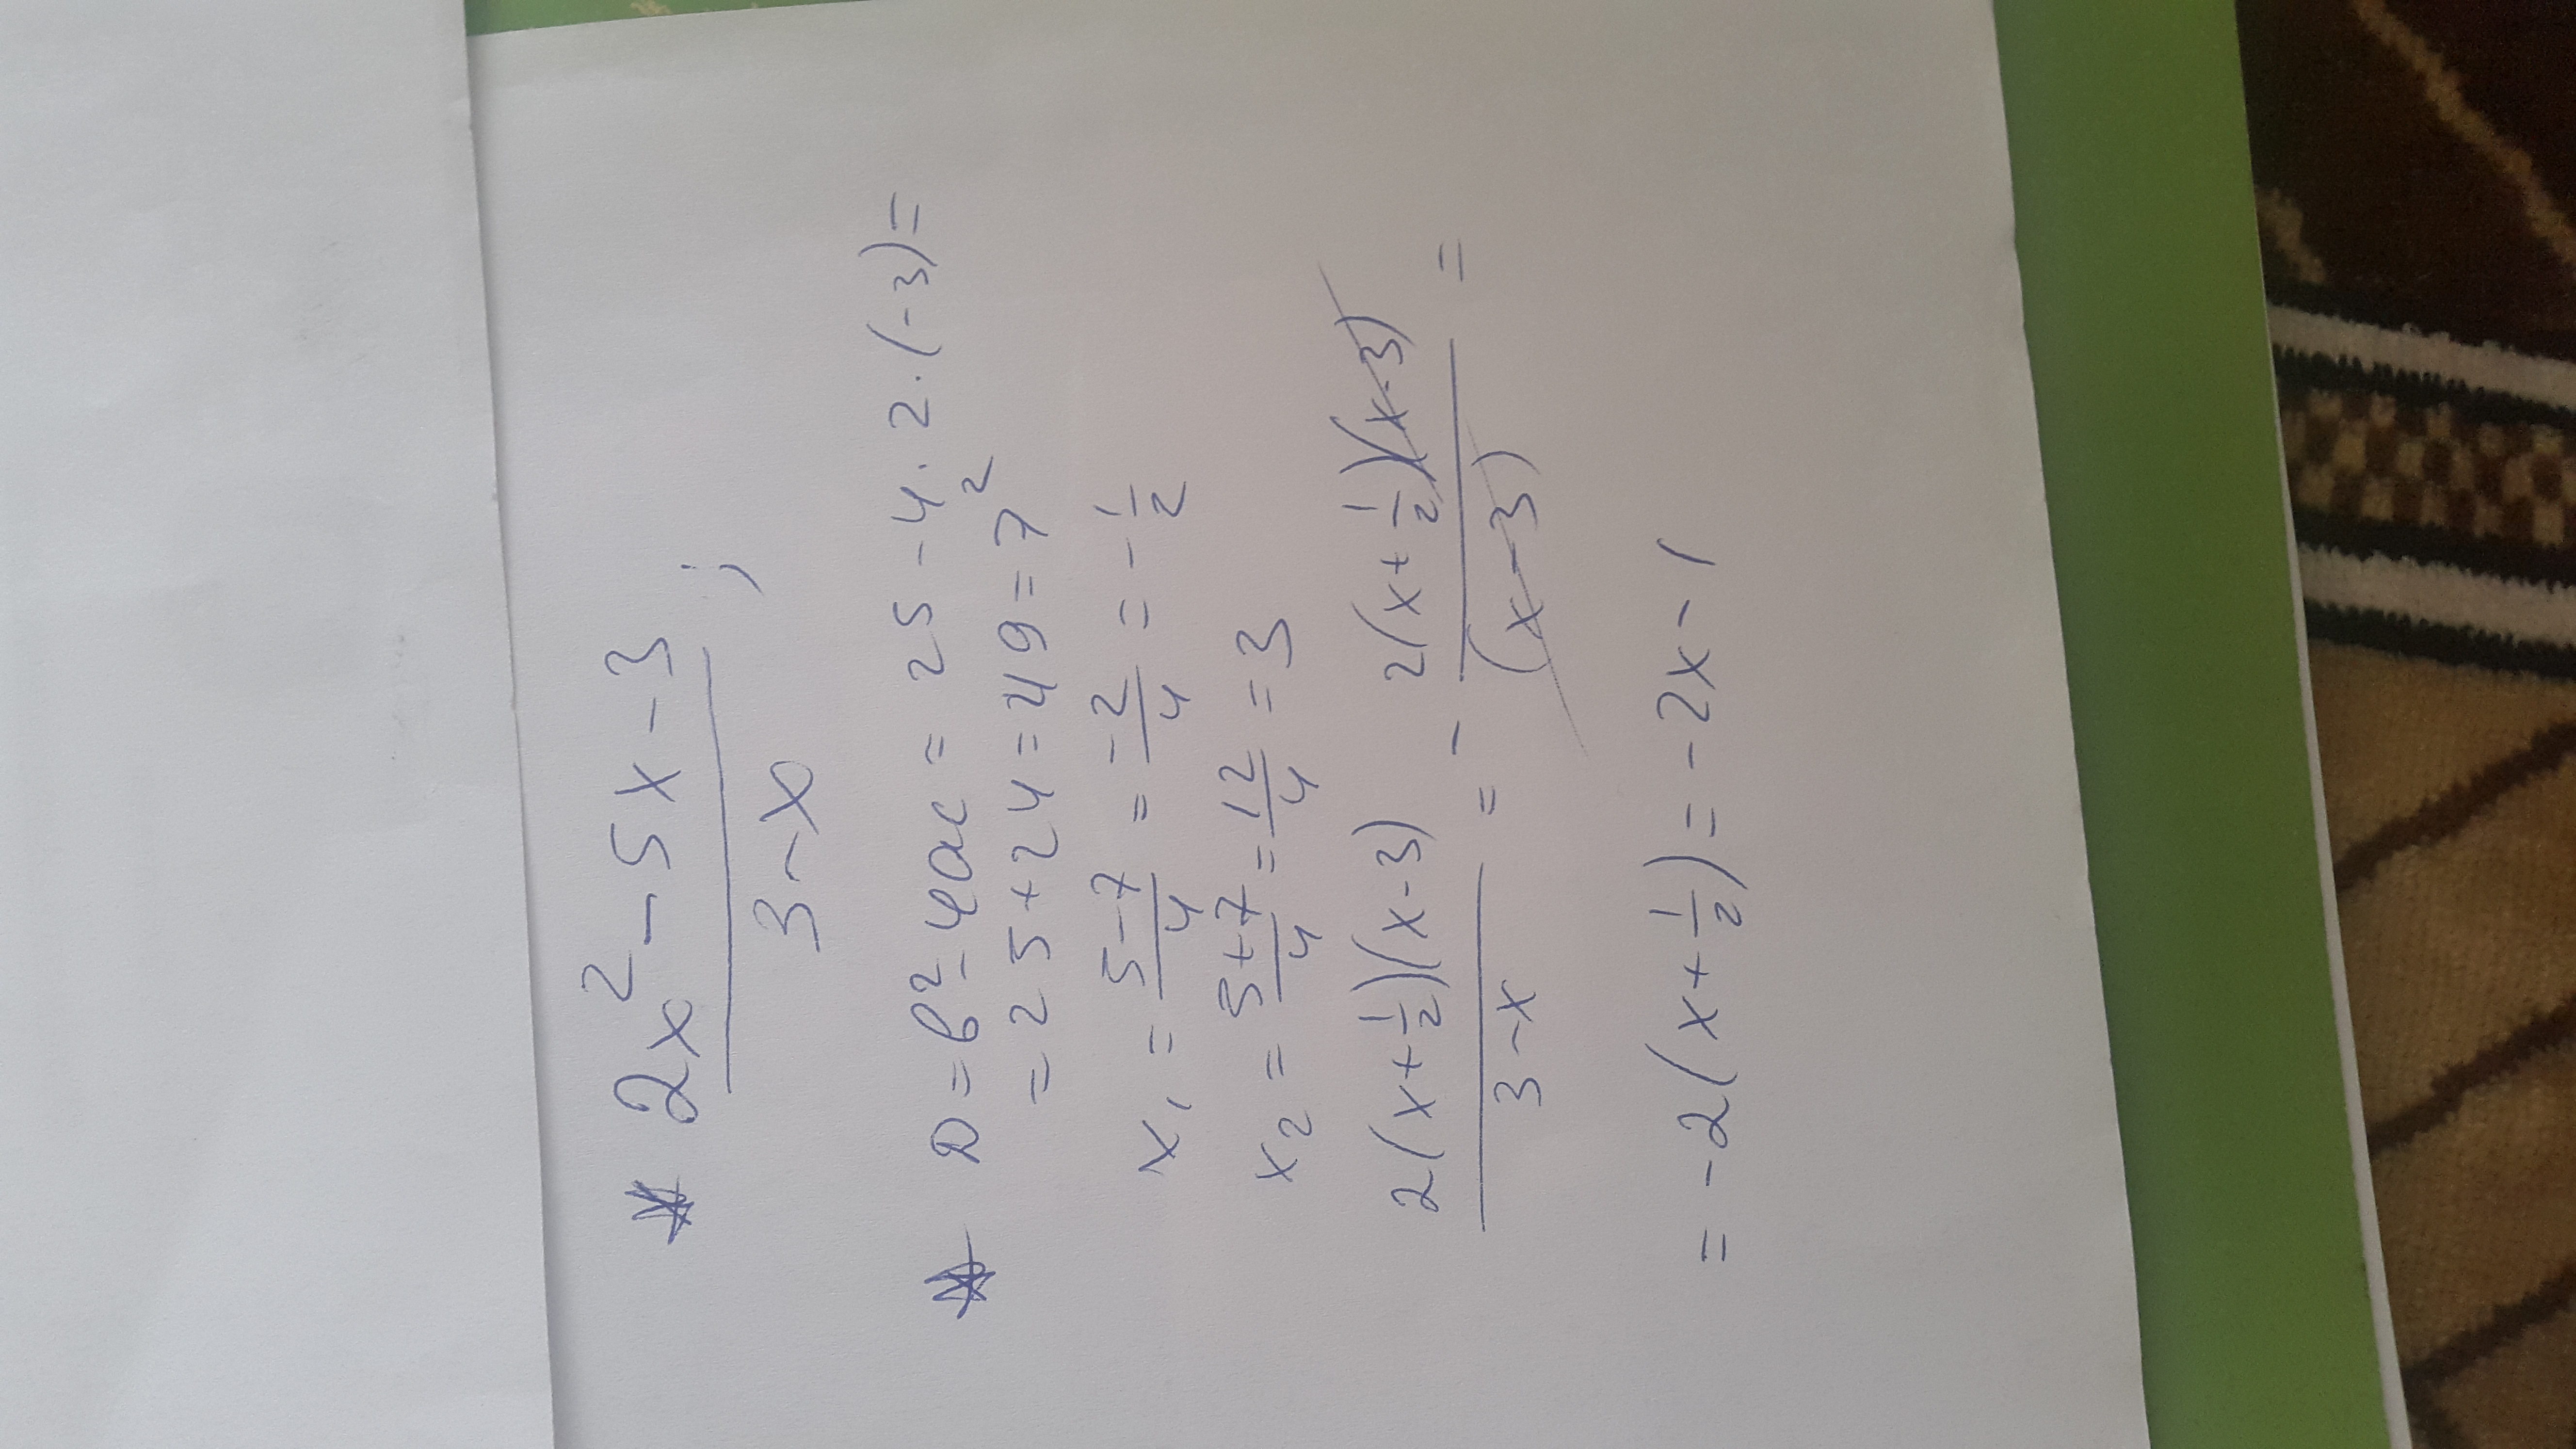 * 2x² - 5x - 3 / 3 - x ;
* D = b² - 4ac = 25 - 4 · 2 · (-3) =
= 25 + 24 = 49 = 7²
x₁ = 5 - 7 / 4 = -2 / 4 = - 1/2
x₂ = 5 + 7 / 4 = 12 / 4 = 3
2(x + 1/2)(x - 3) / 3 - x = - 2(x + 1/2)(x - 3) / (x - 3) =
= -2(x + 1/2) = -2x - 1